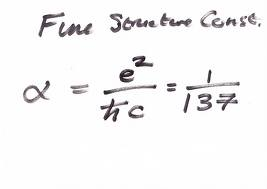 Fine Structure Const.
α = e²/ħc = 1/137